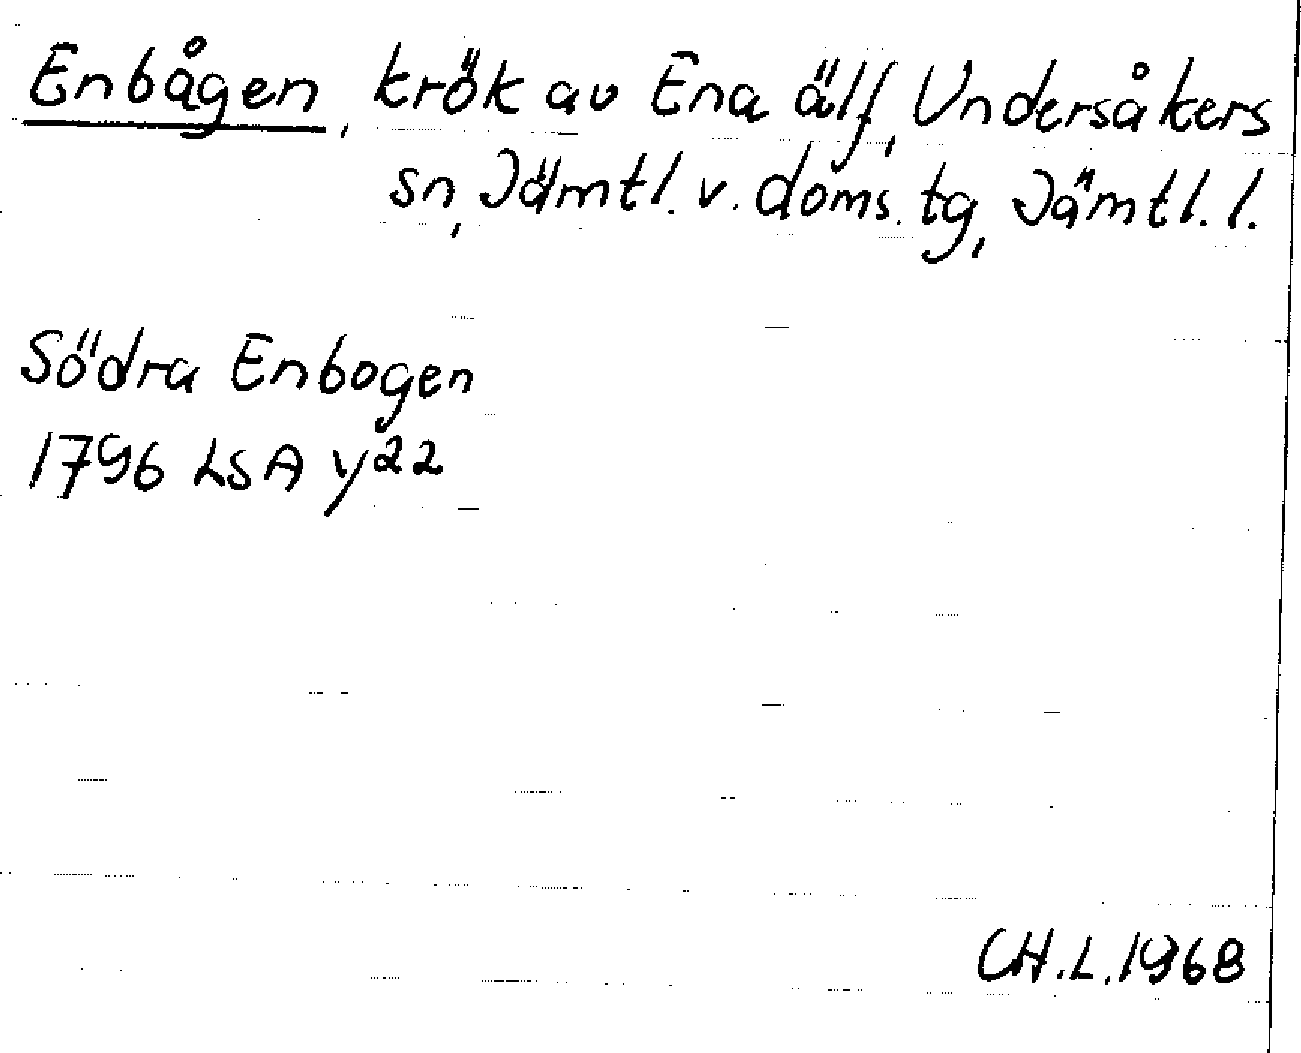 Enbågen, krök av Ena älf, Undersåkers
sn, Jämtl. v. doms. tg, Jämtl. l.
Södra Enbogen
1796 LSA y²²
CH.L.1968